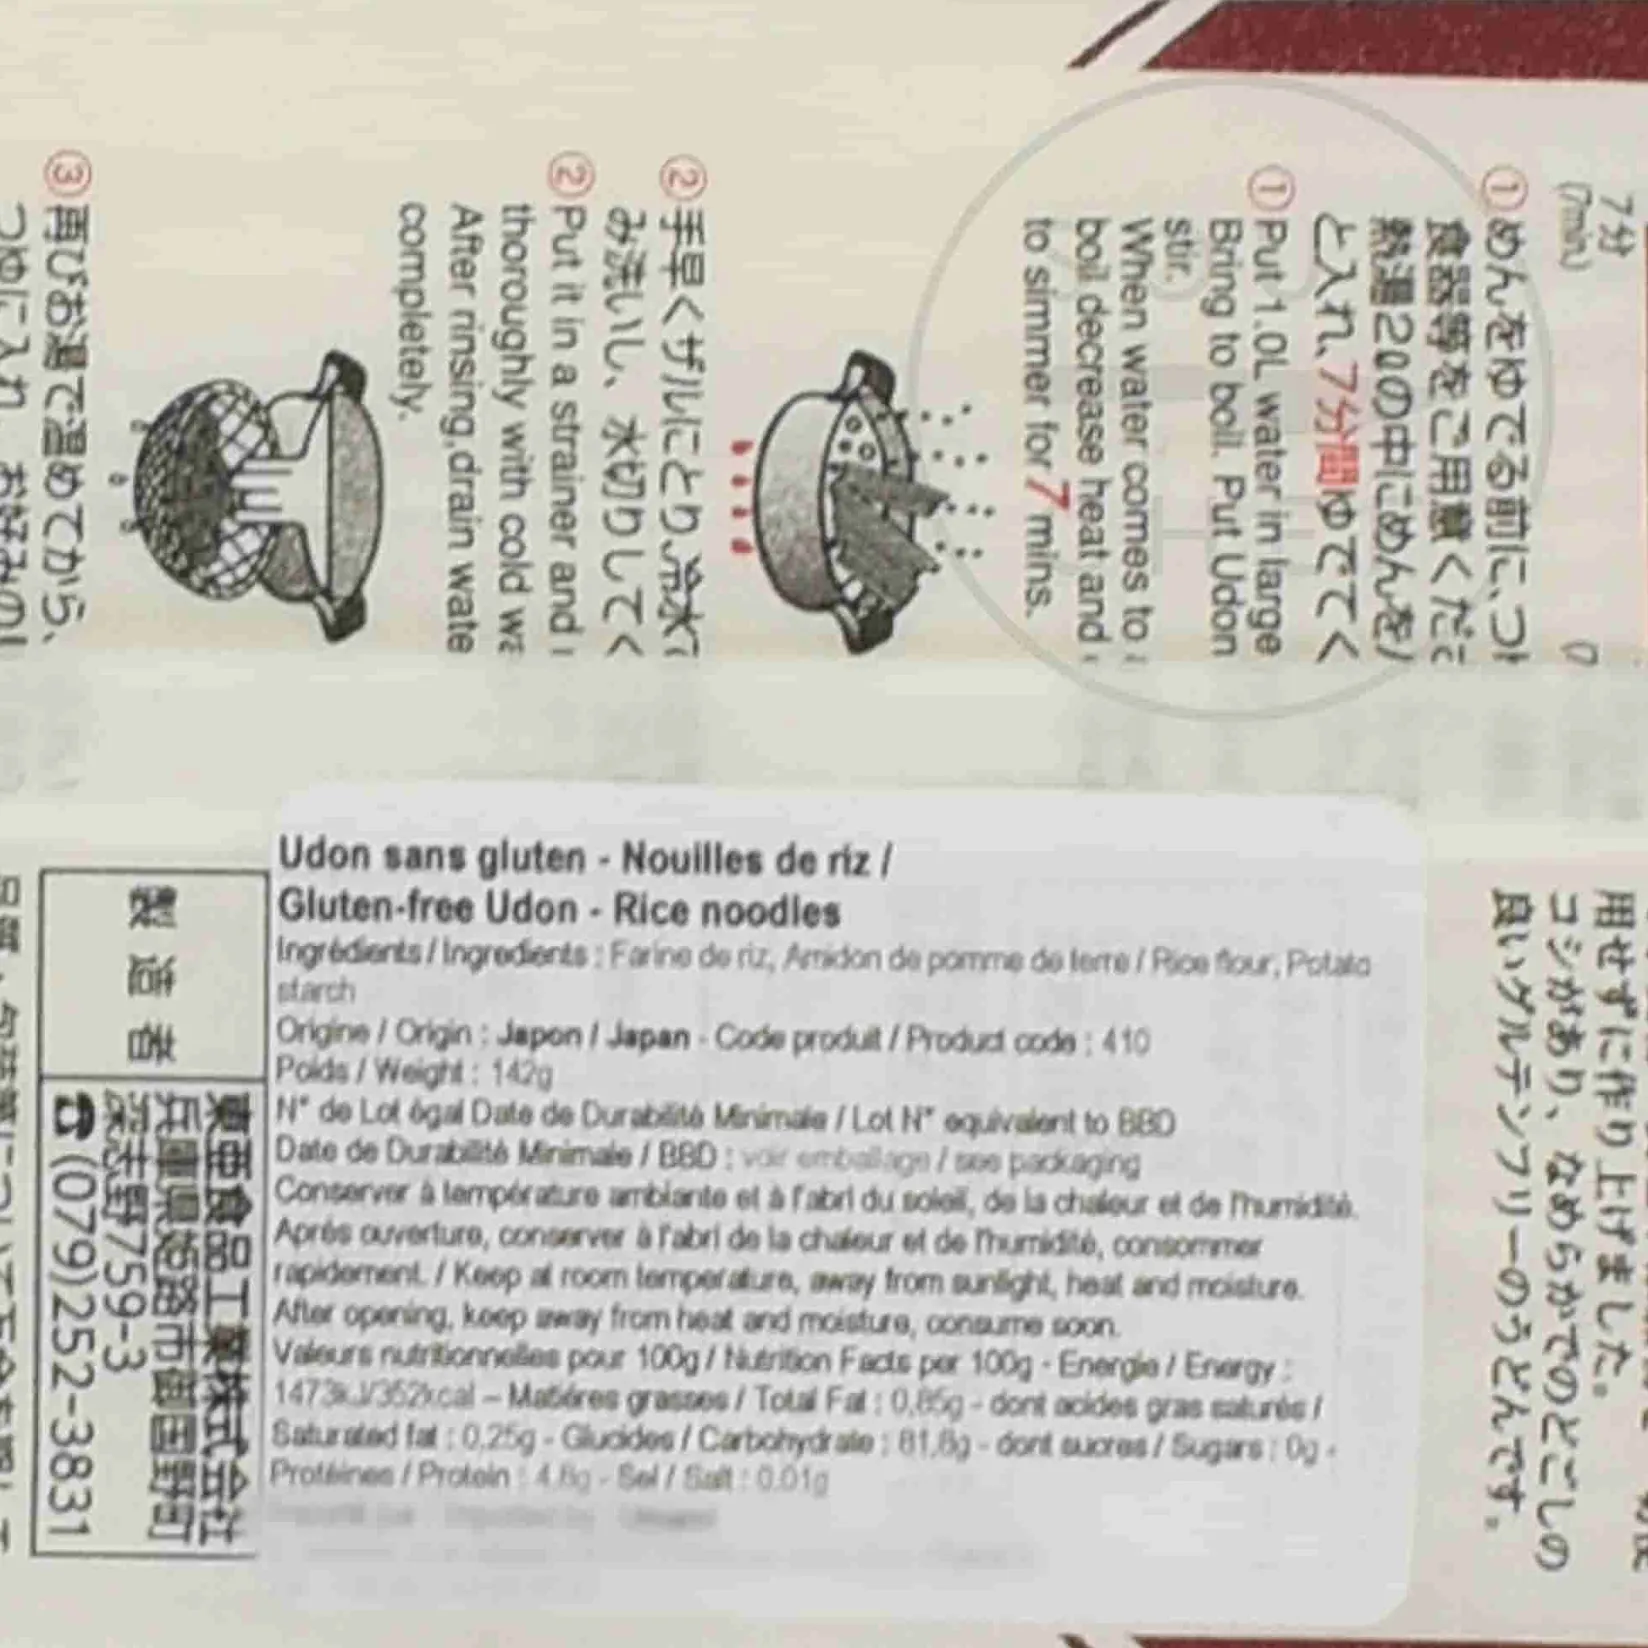 7分
(7min)
①めんをゆでる前に、つ
食器等をご用意くださ
熱湯2ℓの中にめんを
と入れ、7分間ゆでてく
①Put 1.0L water in large
Bring to boil. Put Udon
stir.
When water comes to
boil decrease heat and
to simmer for 7 mins.
②手早くザルにとり冷水で
み洗いし、水切りしてく
②Put it in a strainer and
thoroughly with cold wa
After rinsing,drain wate
completely.
③再びお湯で温めてから、
つゆに入れ、お好みの
Udon sans gluten - Nouilles de riz /
Gluten-free Udon - Rice noodles
Ingrédients / Ingredients : Farine de riz, Amidon de pomme de terre / Rice flour, Potato
starch
Origine / Origin : Japon / Japan - Code produit / Product code : 410
Poids / Weight : 142g
N° de Lot égal Date de Durabilité Minimale / Lot N° equivalent to BBD
Date de Durabilité Minimale / BBD : voir emballage / see packaging
Conserver à température ambiante et à l'abri du soleil, de la chaleur et de l'humidité.
Après ouverture, conserver à l'abri de la chaleur et de l'humidité, consommer
rapidement. / Keep at room temperature, away from sunlight, heat and moisture.
After opening, keep away from heat and moisture, consume soon.
Valeurs nutritionnelles pour 100g / Nutrition Facts per 100g - Energie / Energy :
1473kJ/352kcal – Matières grasses / Total Fat : 0,85g - dont acides gras saturés /
Saturated fat : 0,25g - Glucides / Carbohydrate : 81,8g - dont sucres / Sugars : 0g -
Protéines / Protein : 4,8g - Sel / Salt : 0.01g
用せずに作り上げました。
コシがあり、なめらかでのどごしの
良いグルテンフリーのうどんです。
製造者
東亜食品工業株式会社
兵庫県姫路市御国野町
深志野759-3
☎(079)252-3831